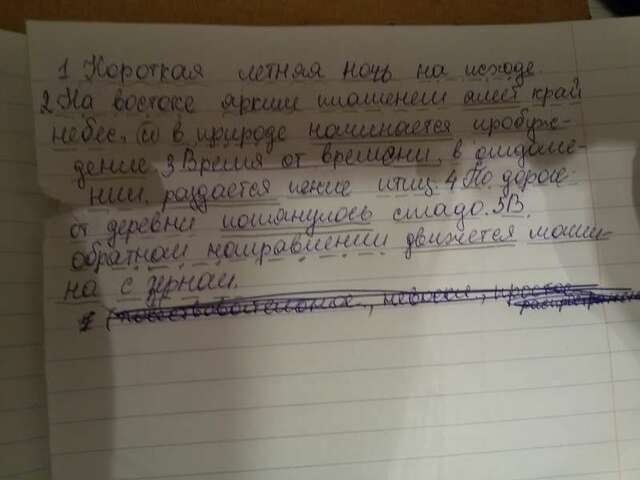 1 Короткая летняя ночь на исходе.
2 На востоке ярким пламенем алеет край
небес, и в природе начинается пробуж-
дение. 3 Время от времени, в отдале-
нии, раздается пение птиц. 4 По дороге
от деревни потянулось стадо. 5 В
обратном направлении движется маши-
на с зерном.
(повествовательное, невоскл., простое
распространен